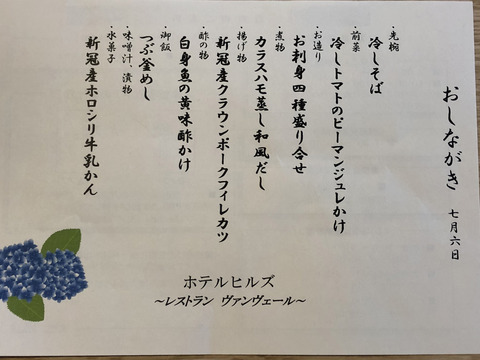 おしながき 七月六日
・先椀
冷しそば
・前菜
冷しトマトのピーマンジュレかけ
・お造り
お刺身四種盛り合せ
・煮物
カラスハモ蒸し和風だし
・揚げ物
新冠産クラウンポークフィレカツ
・酢の物
白身魚の黄味酢かけ
・御飯
つぶ釜めし
・味噌汁、漬物
・水菓子
新冠産ホロシリ牛乳かん
ホテルヒルズ
～レストラン ヴァンヴェール～